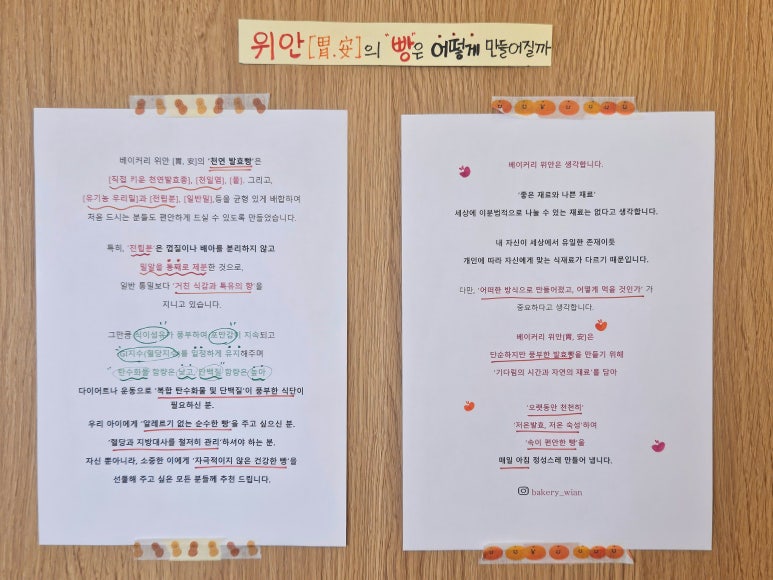 위안[胃.安]의 "빵"은 어떻게 만들어질까
베이커리 위안 [胃, 安]의 '천연 발효빵'은
[직접 키운 천연발효종], [천일염], [물]. 그리고,
[유기농 우리밀]과 [전립분], [일반밀],등을 균형 있게 배합하여
처음 드시는 분들도 편안하게 드실 수 있도록 만들었습니다.
특히, '전립분'은 껍질이나 배아를 분리하지 않고
밀알을 통째로 제분한 것으로,
일반 통밀보다 '거친 식감과 특유의 향'을
지니고 있습니다.
그만큼 식이섬유가 풍부하여 포만감이 지속되고
GI지수(혈당지수)를 일정하게 유지해주며
탄수화물 함량은 낮고, 단백질 함량은 높아
다이어트나 운동으로 '복합 탄수화물 및 단백질'이 풍부한 식단이
필요하신 분.
우리 아이에게 '알레르기 없는 순수한 빵'을 주고 싶으신 분.
'혈당과 지방대사를 철저히 관리'하셔야 하는 분.
자신 뿐아니라, 소중한 이에게 '자극적이지 않은 건강한 빵'을
선물해 주고 싶은 모든 분들께 추천 드립니다.
베이커리 위안은 생각합니다.
'좋은 재료와 나쁜 재료'
세상에 이분법적으로 나눌 수 있는 재료는 없다고 생각합니다.
내 자신이 세상에서 유일한 존재이듯
개인에 따라 자신에게 맞는 식재료가 다르기 때문입니다.
다만, '어떠한 방식으로 만들어졌고, 어떻게 먹을 것인가' 가
중요하다고 생각합니다.
베이커리 위안[胃, 安]은
단순하지만 풍부한 발효빵을 만들기 위해
'기다림의 시간과 자연의 재료'를 담아
'오랫동안 천천히'
'저온발효, 저온 숙성'하여
'속이 편안한 빵'을
매일 아침 정성스레 만들어 냅니다.
bakery_wian